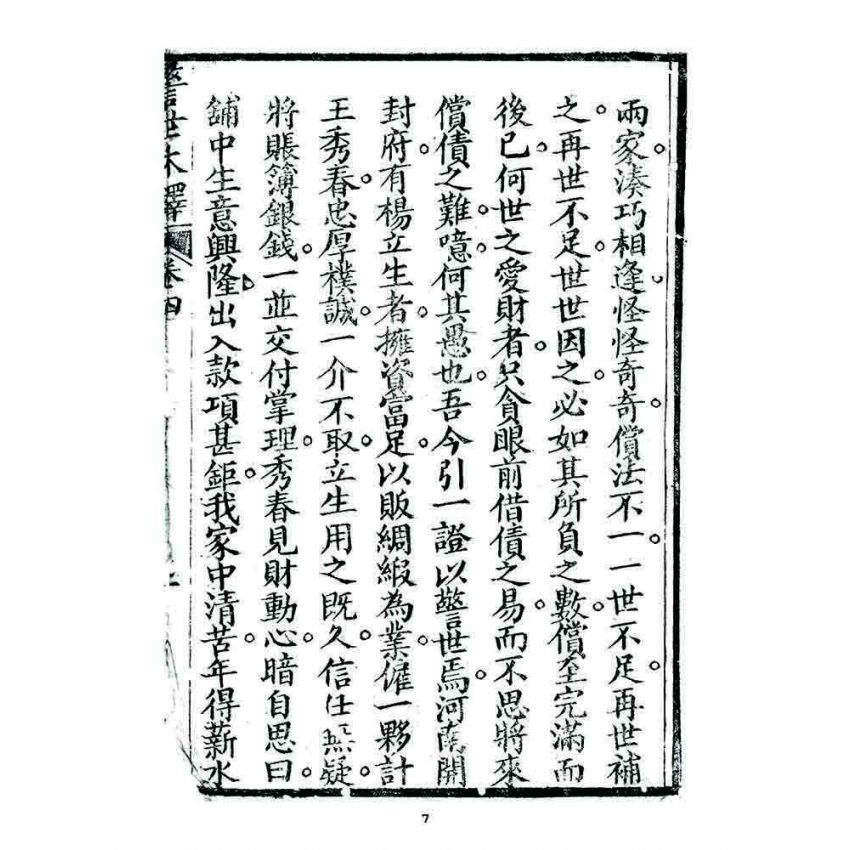 兩家湊巧相逢怪怪奇奇償法不一一世不足再世補
之再世不足世世因之必如其所負之數償至完滿而
後已何世之愛財者只貪眼前借債之易而不思將來
償債之難噫何其愚也吾今引一證以警世焉河南開
封府有楊立生者擁資富足以販綢緞為業僱一夥計
王秀春忠厚樸誠一介不取立生用之既久信任無疑
將賬簿銀錢一並交付掌理秀春見財動心暗自思曰
舖中生意興隆出入款項甚鉅我家中清苦年得薪水
警世木鐸 卷四
7